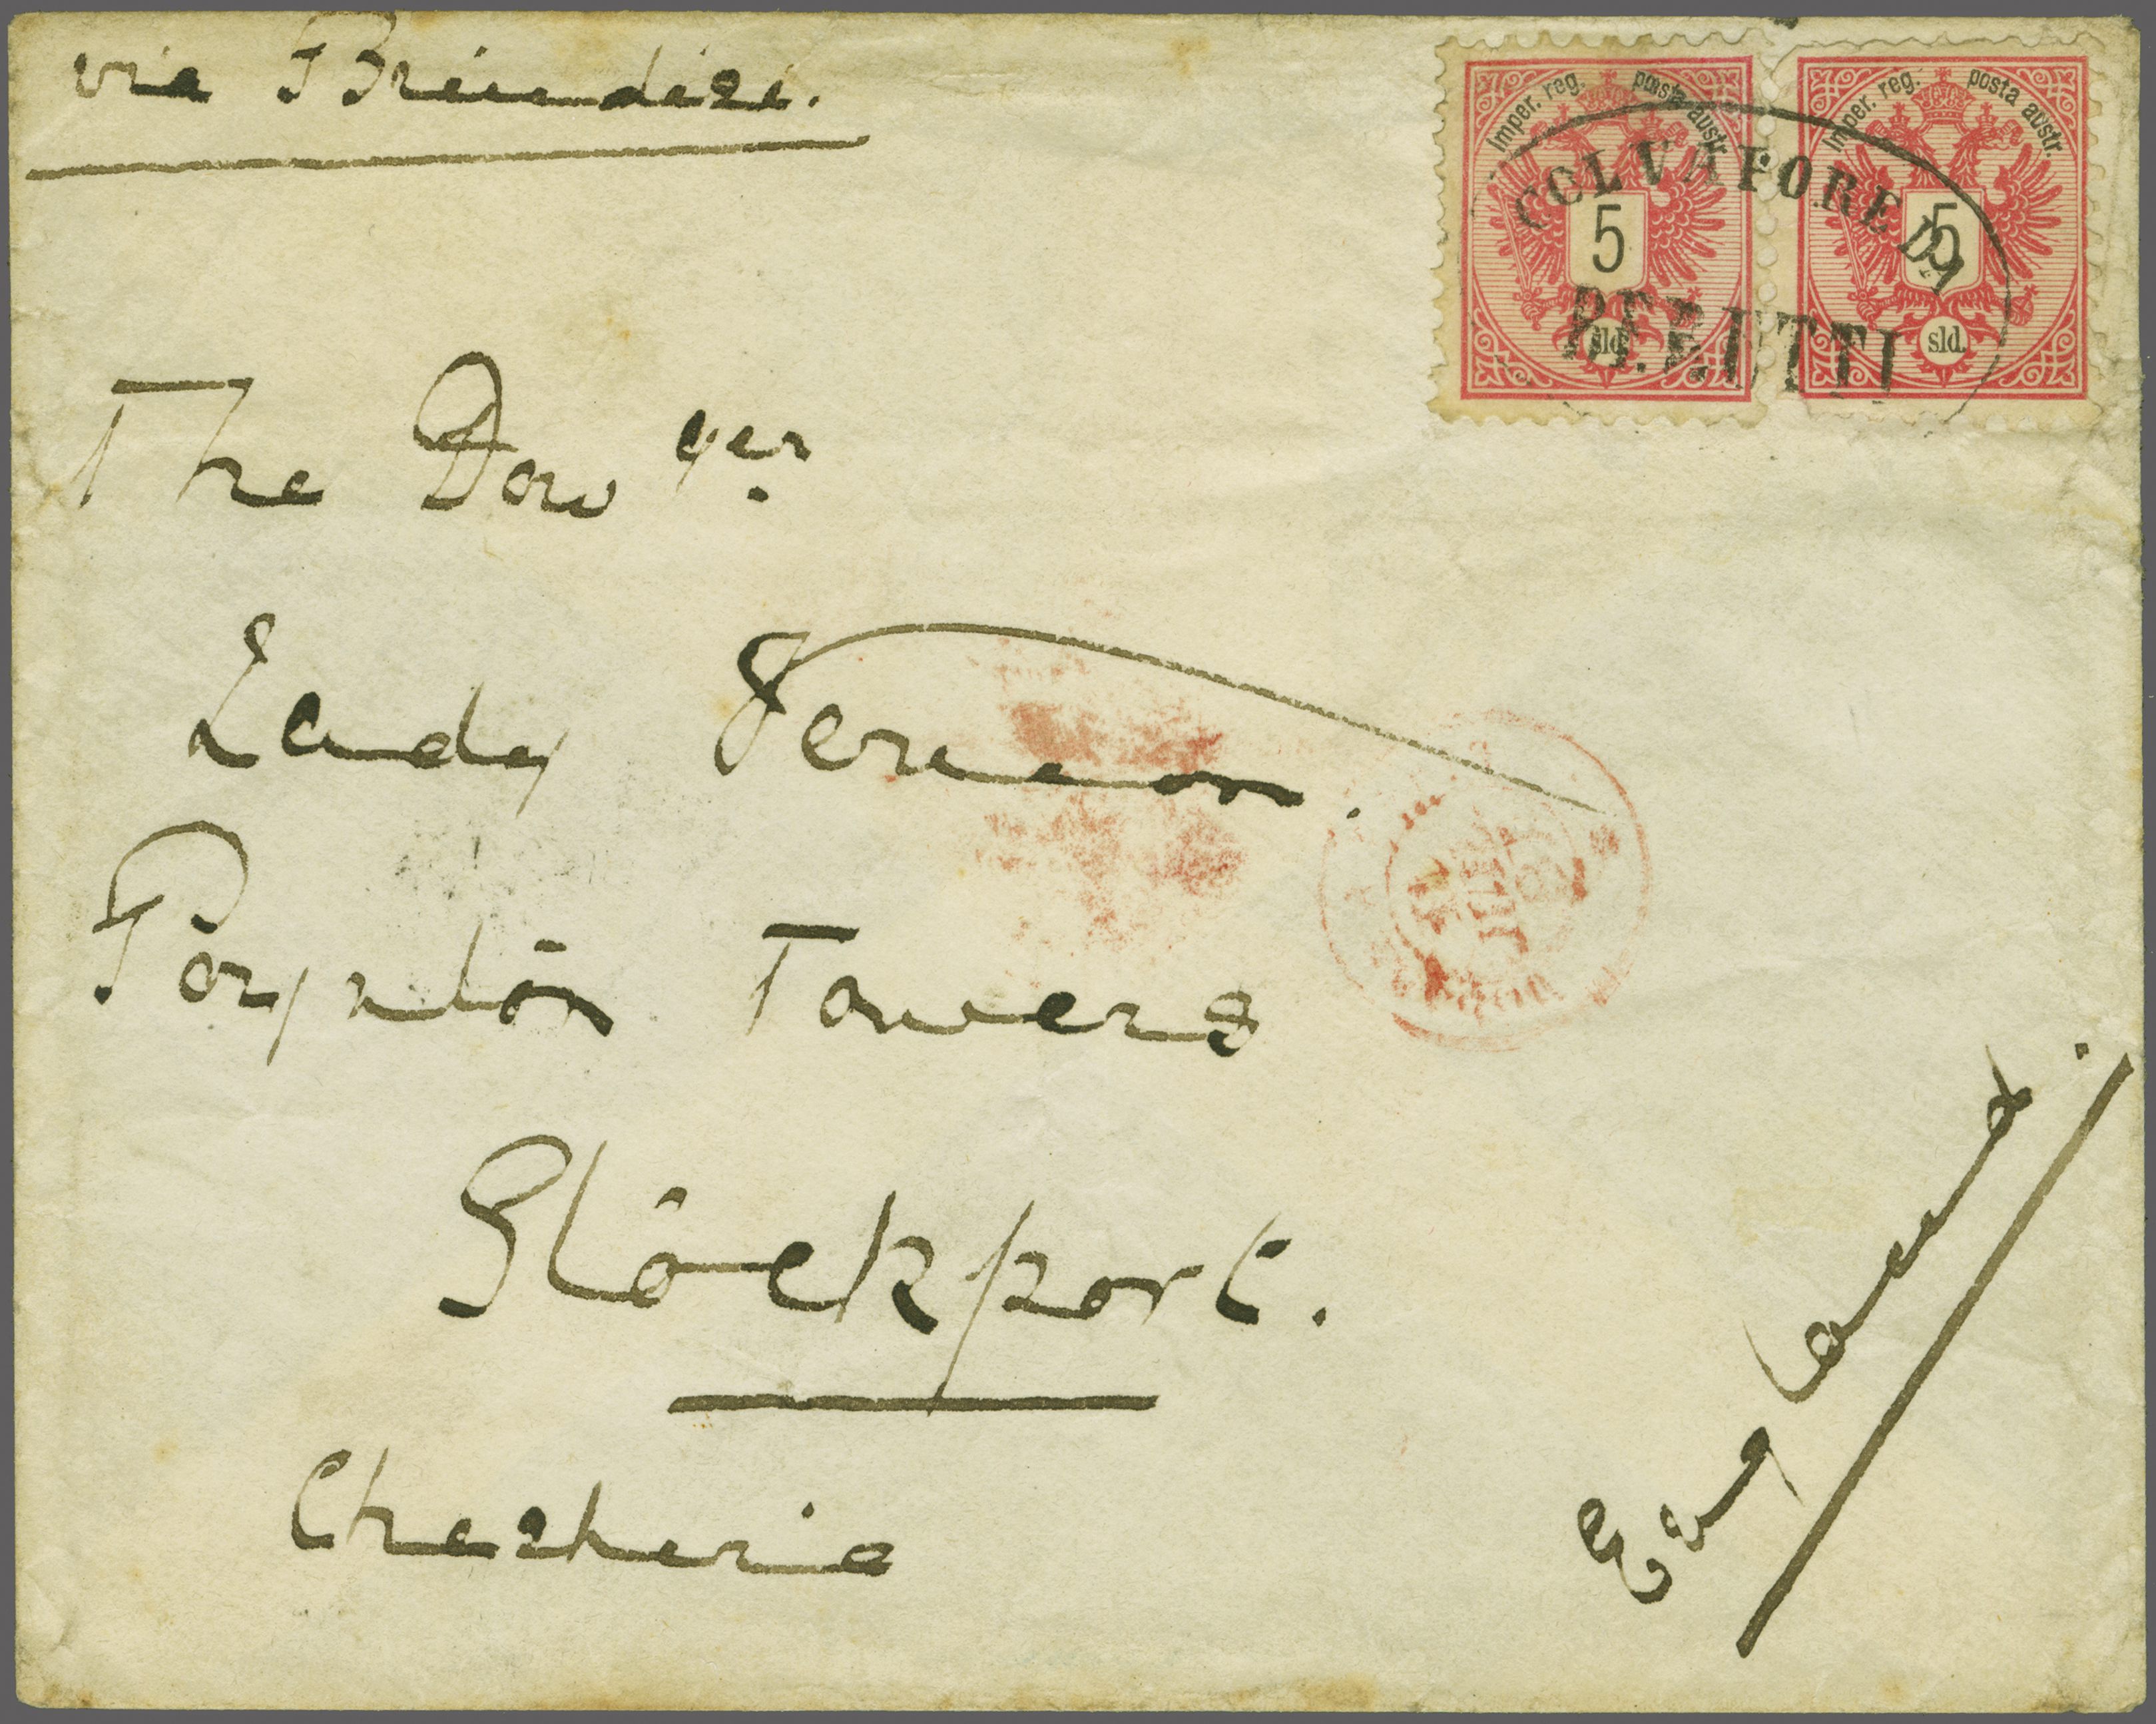 via Brindisi.
Imper. reg. posta austr.
5
sld.
Imper. reg. posta austr.
5
sld.
COL VAPORE DA
BERUTTI
The Dowger.
Lady Vernon.
Poynton Towers
Stockport.
Cheshire
England.